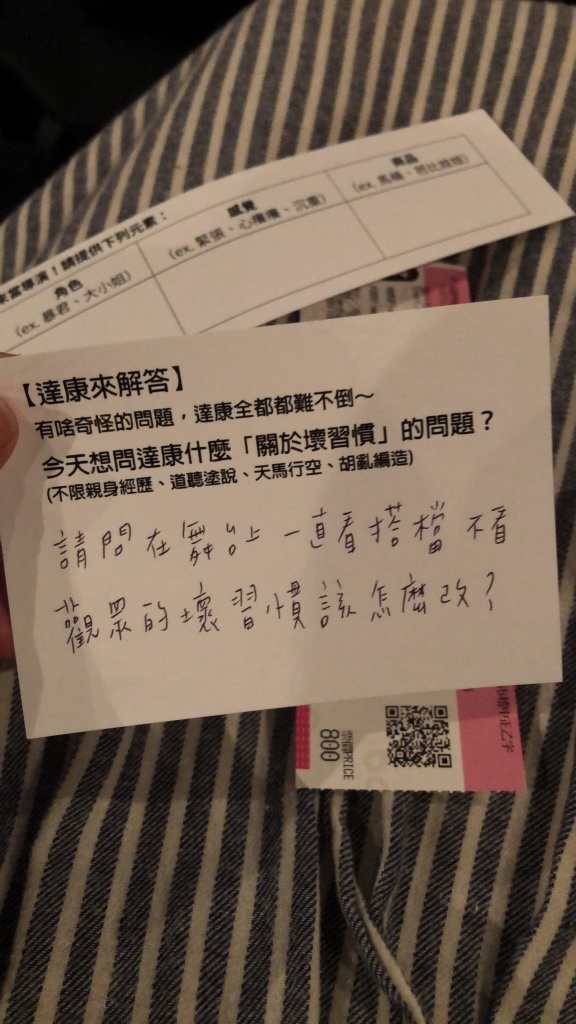 來當導演！請提供下列元素：
角色
(ex. 暴君、大小姐)
感覺
(ex. 緊張、心癢癢、沉重)
商品
【達康來解答】
有啥奇怪的問題，達康全都都難不倒～
今天想問達康什麼「關於壞習慣」的問題？
(不限親身經歷、道聽塗說、天馬行空、胡亂編造)
請問在舞台上一直看搭檔不看
觀眾的壞習慣該怎麼改？
票價PRICE
800